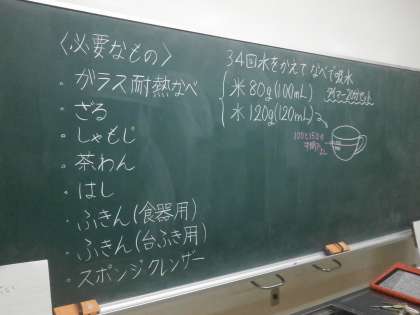 〈必要なもの〉
・ガラス耐熱なべ
・ざる
・しゃもじ
・茶わん
・はし
・ふきん(食器用)
・ふきん(台ふき用)
・スポンジクレンザー
34回水をかえて なべで吸水
米 80g(100mL)
水 120g(120mL)
タイマー20分セット
100と150の